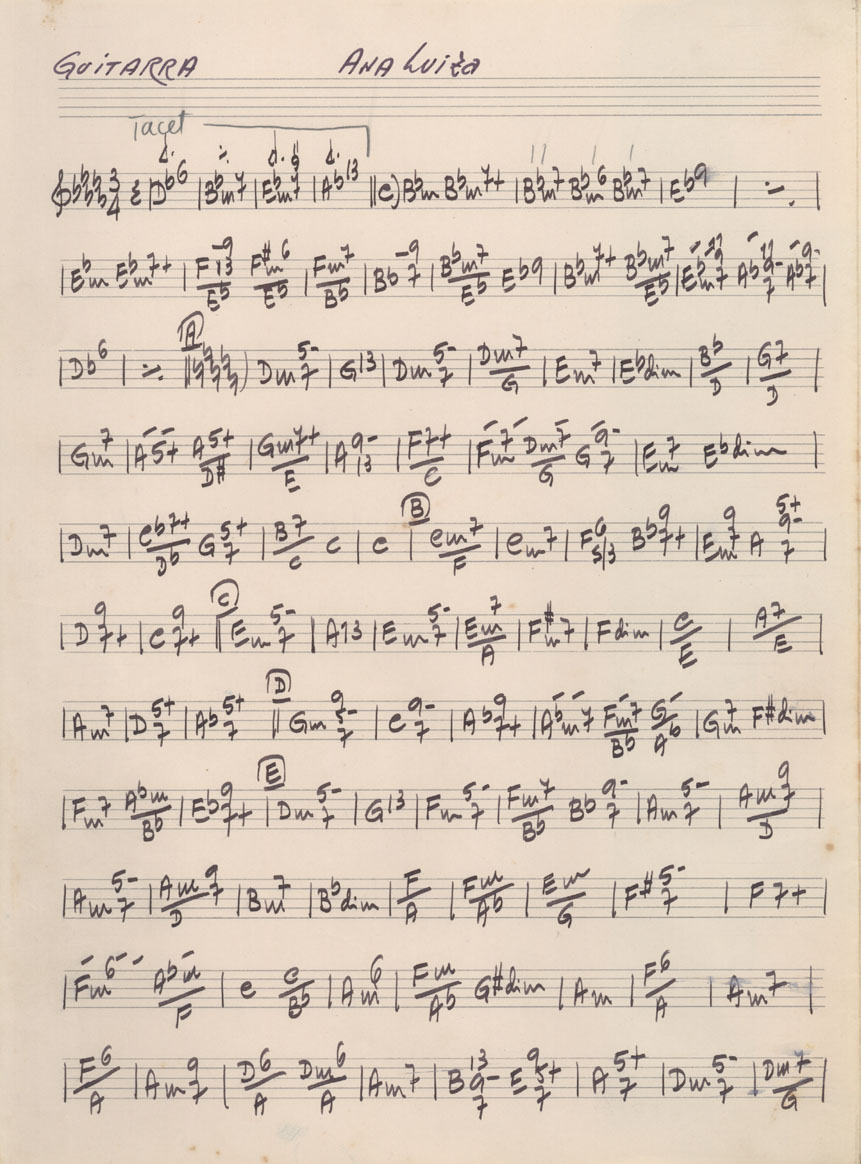 GUITARRA ANA LUiza
Tacet
3/4 | Db6 | Bbm7 | Ebm7 | Ab13 || C) Bbm Bbm7+ | Bbm7 Bbm6 Bbm7 | Eb9 | ٪ |
| Ebm Ebm7+ | F13 9-/Eb F#m6/Eb | Fm7/Bb | Bb7 9- | Bbm7/Eb Eb9 | Bbm7+ Bbm7/Eb | Ebm7 Ab7 9- Ab7 9- |
| Db6 | ٪ [A] || Dm7 5- | G13 | Dm7 5- | Dm7/G | Em7 | Ebdim | Bb/D | G7/D |
| Gm7 | A5+ A5+/D# | Gm7+/E | A13 9- | F7+/C | Fm7 Dm7/G G7 9- | Em7 Ebdim |
| Dm7 | Cb7+/Db G7 5+ | B7/C C | C | [B] Cm7/F | Cm7 | F6 Bb7+ 9 | Em7 9 A7 9- 5+ |
| D7+ 9 | C7+ 9 [C] || Em7 5- | A13 | Em7 5- | Em7/A | F#m7 | Fdim | C/E | A7/E |
| Am7 | D7 5+ | Ab7 5+ [D] || Gm7 5- 9 | C7 9- | Ab7+ 9 | Abm7 Fm7/Bb G/Ab | Gm7 F#dim |
| Fm7 Abm/Bb | Eb7+ 9 [E] | Dm7 5- | G13 | Fm7 5- | Fm7/Bb Bb7 9- | Am7 5- | Am7 9/D |
| Am7 5- | Am7 9/D | Bm7 | Bbdim | F/A | Fm/Ab | Em/G | F#7 5- | F7+ |
| Fm6 Abm/F | C C/Bb | Am6 | Fm/Ab G#dim | Am | F6/A | Am7 |
| E6/A | Am7 9 | D6/A Dm6/A | Am7 | B7 9- 13 E7 5+ 9 | A7 5+ | Dm7 5- | Dm7/G |